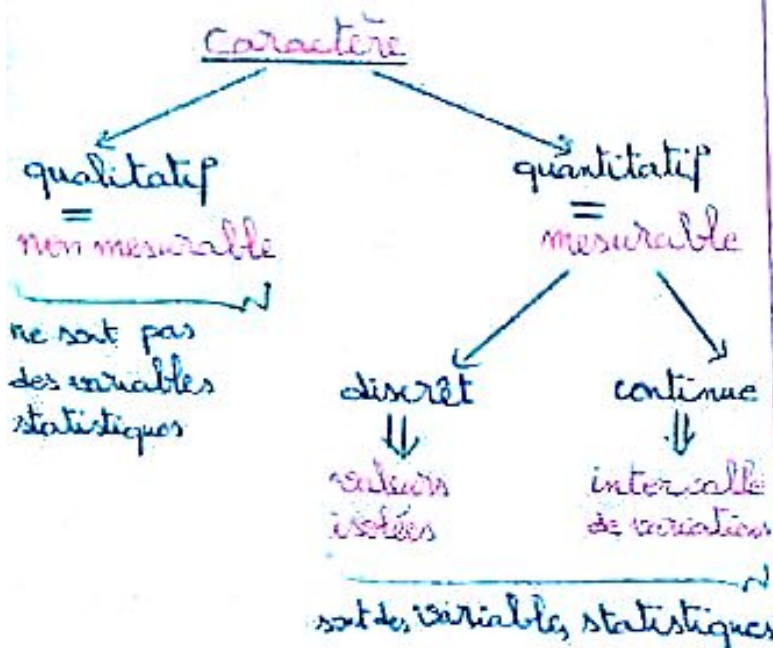 Caractère
qualitatif
=
non mesurable
ne sont pas
des variables
statistiques
quantitatif
=
mesurable
discrêt
⇓
valeurs
isolées
continue
⇓
intervalle
de variations
sont des variables statistiques